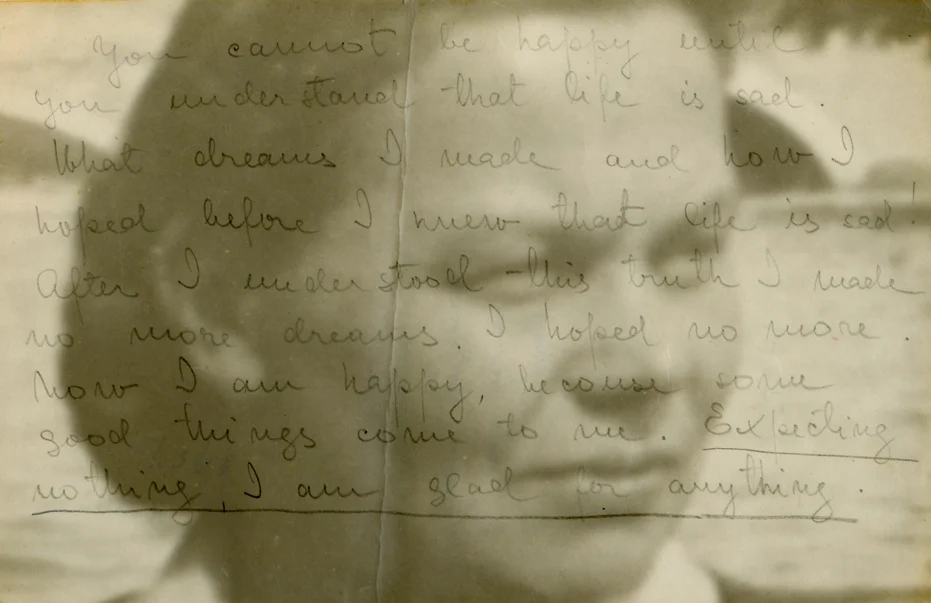 You cannot be happy until
you understand that life is sad.
What dreams I made and how I
hoped before I knew that life is sad!
After I understood this truth I made
no more dreams. I hoped no more.
Now I am happy, because some
good things come to me. Expecting
nothing, I am glad for anything.